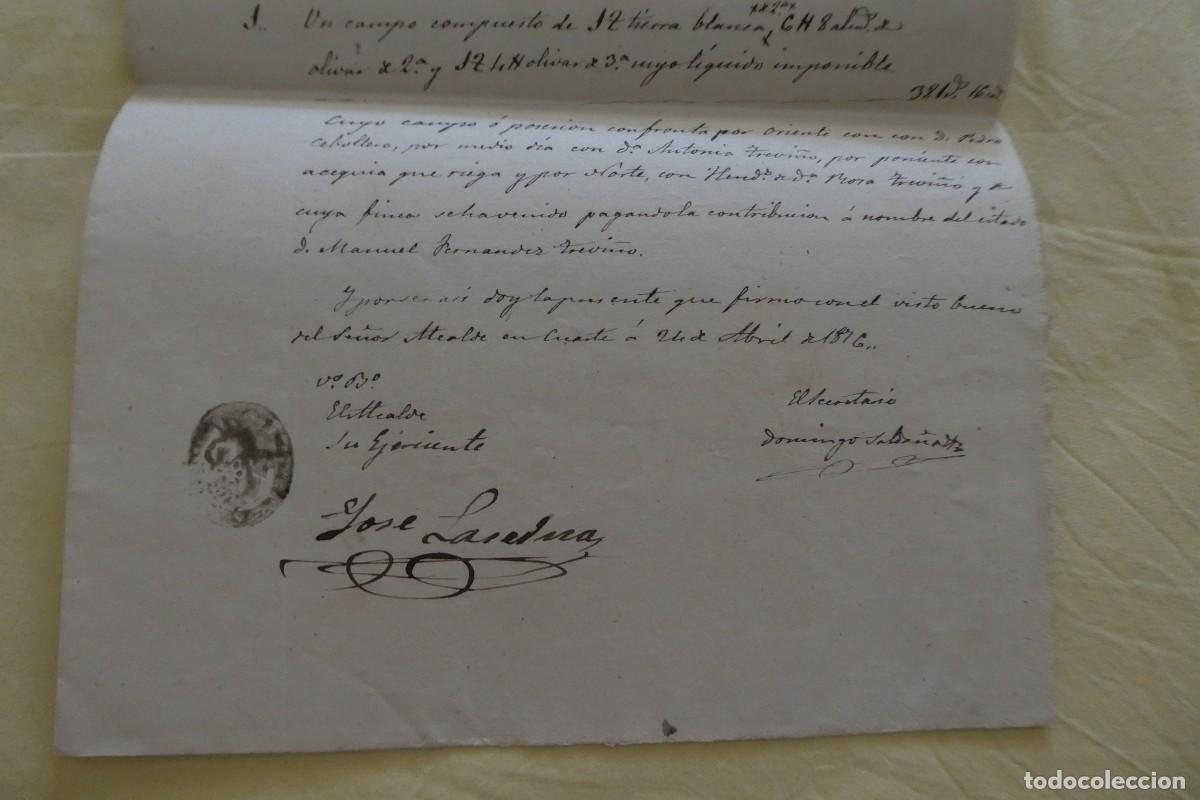 1.. Un campo compuesto de 1Z tierra blanca, de 2ª 6H 8 almd.s de
olivar de 2.ª y 1Z 4H olivar de 3.ª cuyo líquido imponible
381 16
Cuyo campo ó posesion confronta por oriente con con D. Pedro
Cebollero, por medio día con d.ª Antonia Treviño, por poniente con
acequia que riega y por Norte, con Hered.s de d.ª Rosa Treviño y de
cuya finca se ha venido pagando la contribucion á nombre del citado
D. Manuel Fernandez Treviño.
Y por ser asi doy la presente que firmo con el visto bueno
del Señor Alcalde en Cuarte á 24 de Abril de 1876..
Vº Bº
El Alcalde
Su Ejerciente
El Secretario
Domingo
Jose
todocoleccion